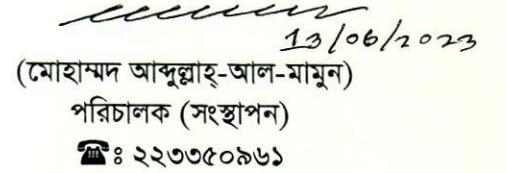 13/06/2023
(মোহাম্মদ আব্দুল্লাহ্-আল-মামুন)
পরিচালক (সংস্থাপন)
☎ঃ ২২৩৩৫০৯৬১